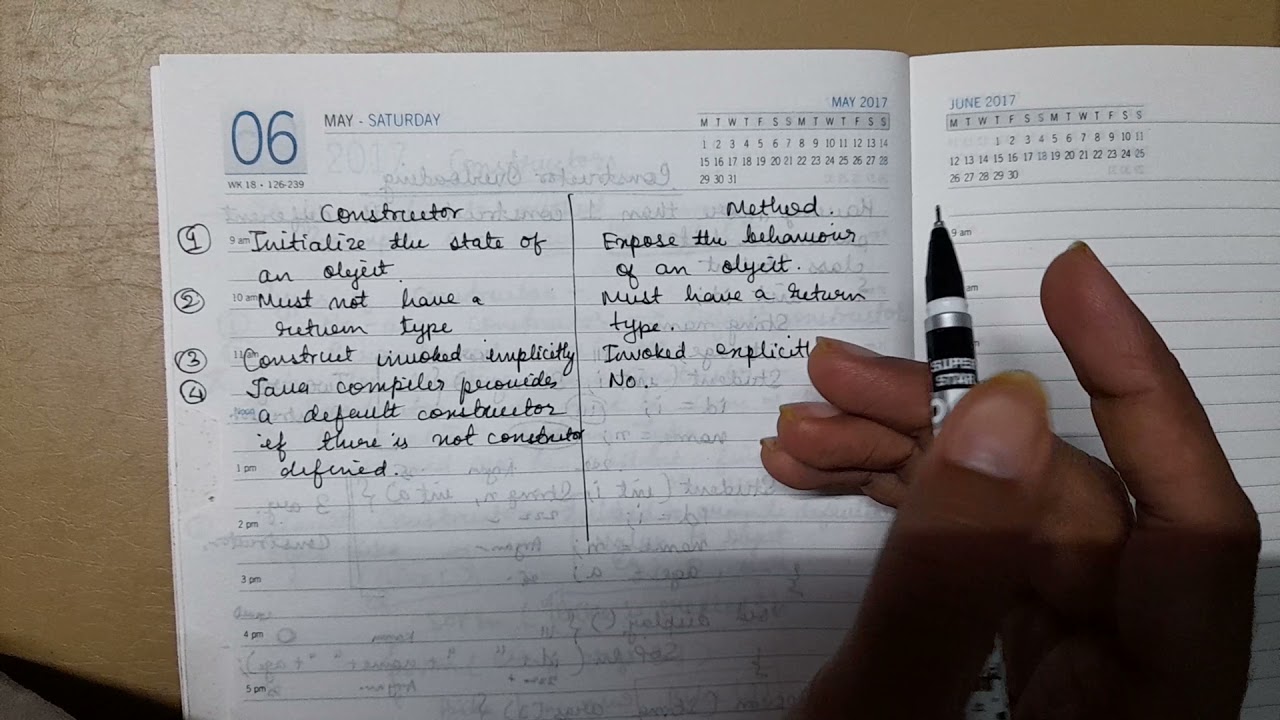 06
MAY - SATURDAY
WK 18 • 126-239
MAY 2017
M T W T F S S M T W T F S S
1 2 3 4 5 6 7 8 9 10 11 12 13 14
15 16 17 18 19 20 21 22 23 24 25 26 27 28
29 30 31
JUNE 2017
M T W T F S S M T W T F S S
1 2 3 4 5 6 7 8 9 10 11
12 13 14 15 16 17 18 19 20 21 22 23 24 25
26 27 28 29 30
Constructor
① 9 am Initialize the state of
an object
② 10 am Must not have a
return type
③ 11 am Construct invoked implicitly
④ Java compiler provides
Noon a default constructor
if there is not constructor
1 pm defined.
2 pm
3 pm
4 pm
5 pm
Method.
Expose the behaviour
of an object.
Must have a return
type.
Invoked explicitl
No
9 am
am
SUPER
STAR